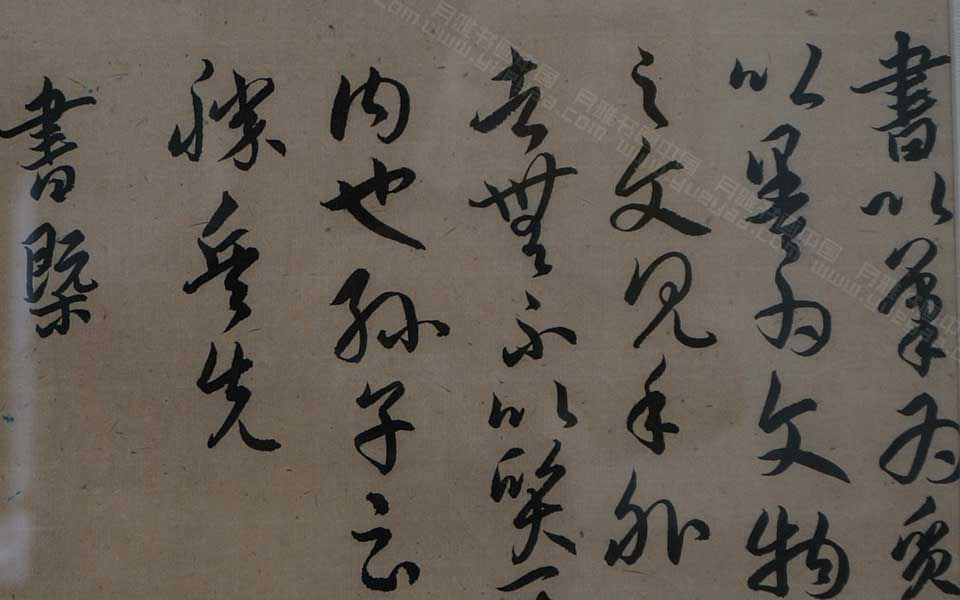 書以筆為質
以墨為文物
之文見乎外
者無不以質
内也孫子云
勝兵先
書槩